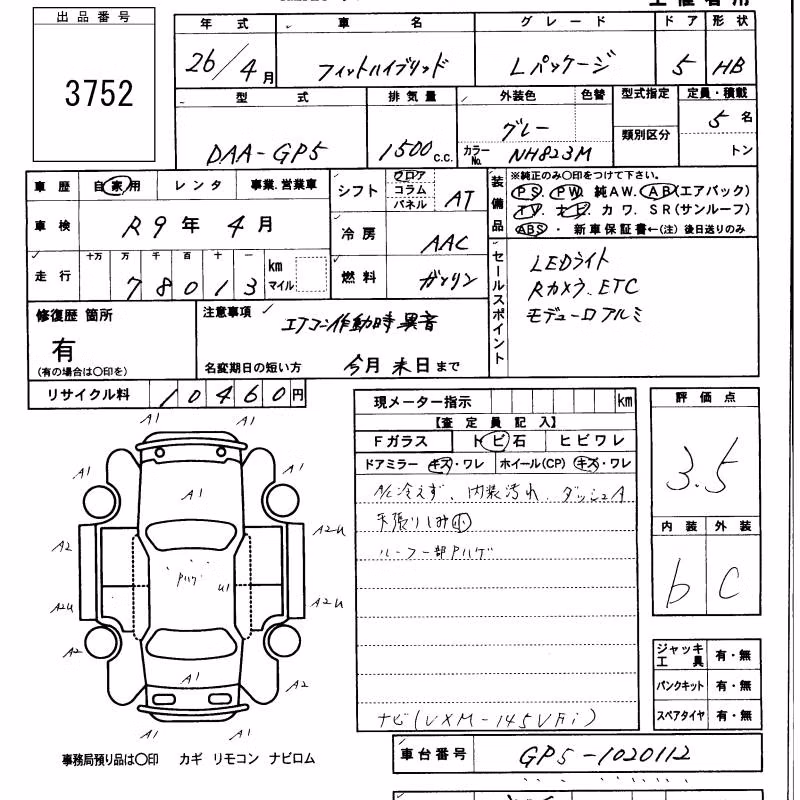 出品番号
3752
年式 車名 グレード ドア 形状
26/4月 フィットハイブリッド Lパッケージ 5 HB
型式 排気量 外装色 色替 型式指定 定員・積載
DAA-GP5 1500c.c. グレー 類別区分 5名
カラーNo. NH823M トン
車歴 自家用 レンタ 事業.営業車
車検 R9年4月
走行 十万 万 千 百 十 一 km マイル
78013
シフト フロア コラム パネル AT
冷房 AAC
燃料 ガソリン
装備品
※純正のみ○印をつけて下さい。
PS. PW. 純AW. AB(エアバック)
TV. ナビ. カワ. SR(サンルーフ)
ABS ・ 新車保証書←(注) 後日送りのみ
セールスポイント
LEDライト
Rカメラ. ETC
モデューロアルミ
修復歴 箇所
有
(有の場合は○印を)
注意事項
エアコン作動時異音
名変期日の短い方 今月末日まで
リサイクル料 10460円
現メーター指示 km
【査定員記入】
Fガラス トビ石 ヒビワレ
ドアミラー キズ・ワレ ホイール(CP) キズ・ワレ
A/C冷えず、内装汚れ、ダッシュA
天張りしみ小
ルーフ一部Pハゲ
ナビ(VXM-145VFi)
評価点
3.5
内装 外装
b C
ジャッキ工具 有・無
パンクキット 有・無
スペアタイヤ 有・無
A1 A1
A1 A1 A1
A2 A2U
Pハゲ U1
A2U A2U
A2 A1 A2
A1 A1
事務局預り品は○印 カギ リモコン ナビロム
車台番号 GP5-1020112